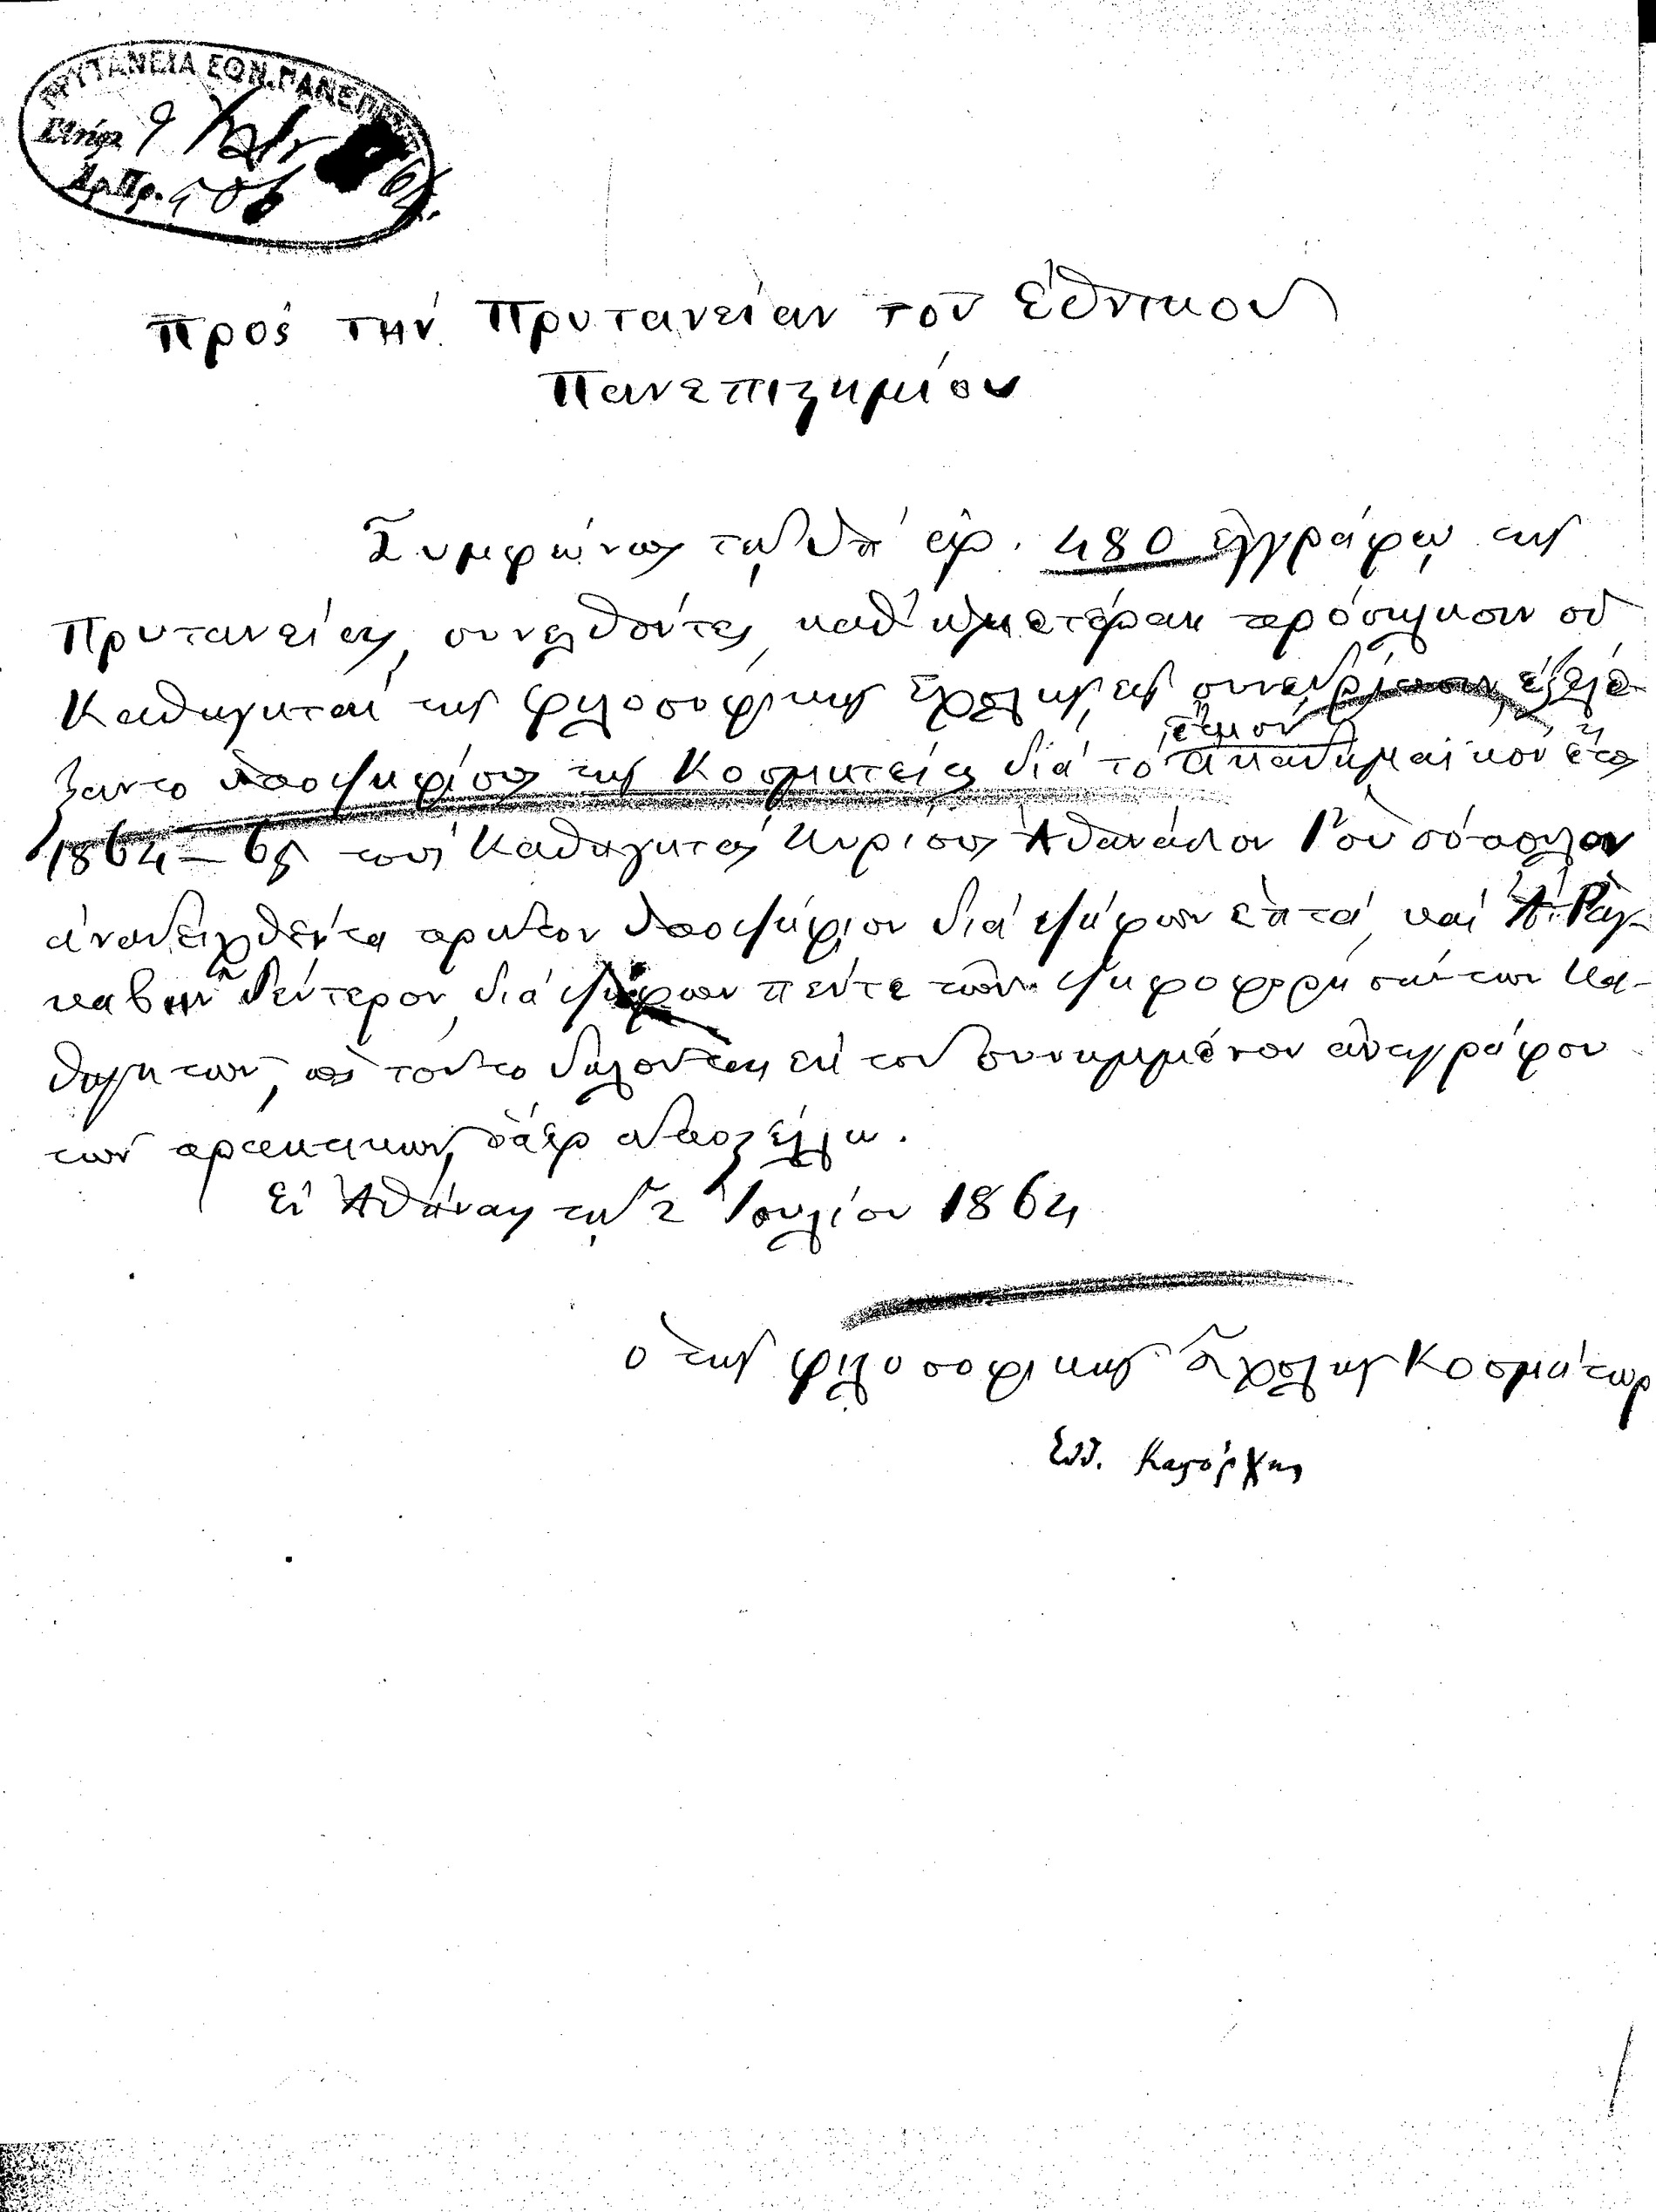 ΠΡΥΤΑΝΕΙΑ ΕΘΝ. ΠΑΝΕΠΙΣΤ
9
Αρ.Πρ. 506
Πρός τήν Πρυτανείαν τοῦ Ἐθνικοῦ
Πανεπιστημίου
Συμφώνως τῷ ὑπ' ἀρ. 480 ἐγγράφῳ τῆς
Πρυτανείας, συνελθόντες καθ' ἡμετέραν πρόσκλησιν οἱ
Καθηγηταί τῆς φιλοσοφικῆς Σχολῆς εἰς συνεδρίασιν, ἐξελέ-
ξαντο ὑποψηφίους τῆς Κοσμητείας διά τό ἀκαδημαϊκόν ἔτος
1864–65 τούς Καθηγητάς Κυρίους Ἀθανάσιον Ῥουσόπουλον
ἀναδειχθέντα πρῶτον ὑποψήφιον διά ψήφων ἑπτά, καί Ἀ. Ῥαγ-
καβῆν δεύτερον, διά ψήφων πέντε τῶν ψηφοφορησάντων Κα-
θηγητῶν, ὡς τοῦτο δηλοῦται ἐκ τοῦ συνημμένου ἀντιγράφου
τῶν πρακτικῶν, ὅπερ ἀποστέλλω.
Ἐν Ἀθήναις τῇ 2 Ἰουλίου 1864
Ὁ τῆς φιλοσοφικῆς Σχολῆς Κοσμήτωρ
Εὐθ. Καστόρχης